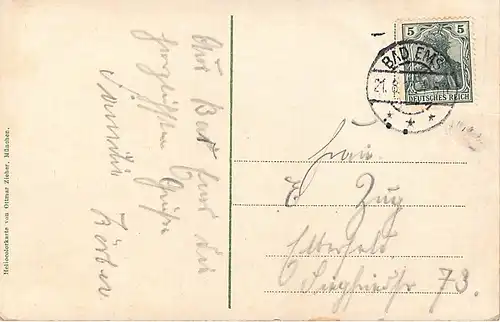 Aus Bad Ems die
herzlichsten Grüße
Familie Körber
Heliocolorkarte von Ottmar Zieher, München.
5 5
DEUTSCHES REICH
BAD EMS
21.
Frau
Zug
Elberfeld
Siegfriedstr 73.